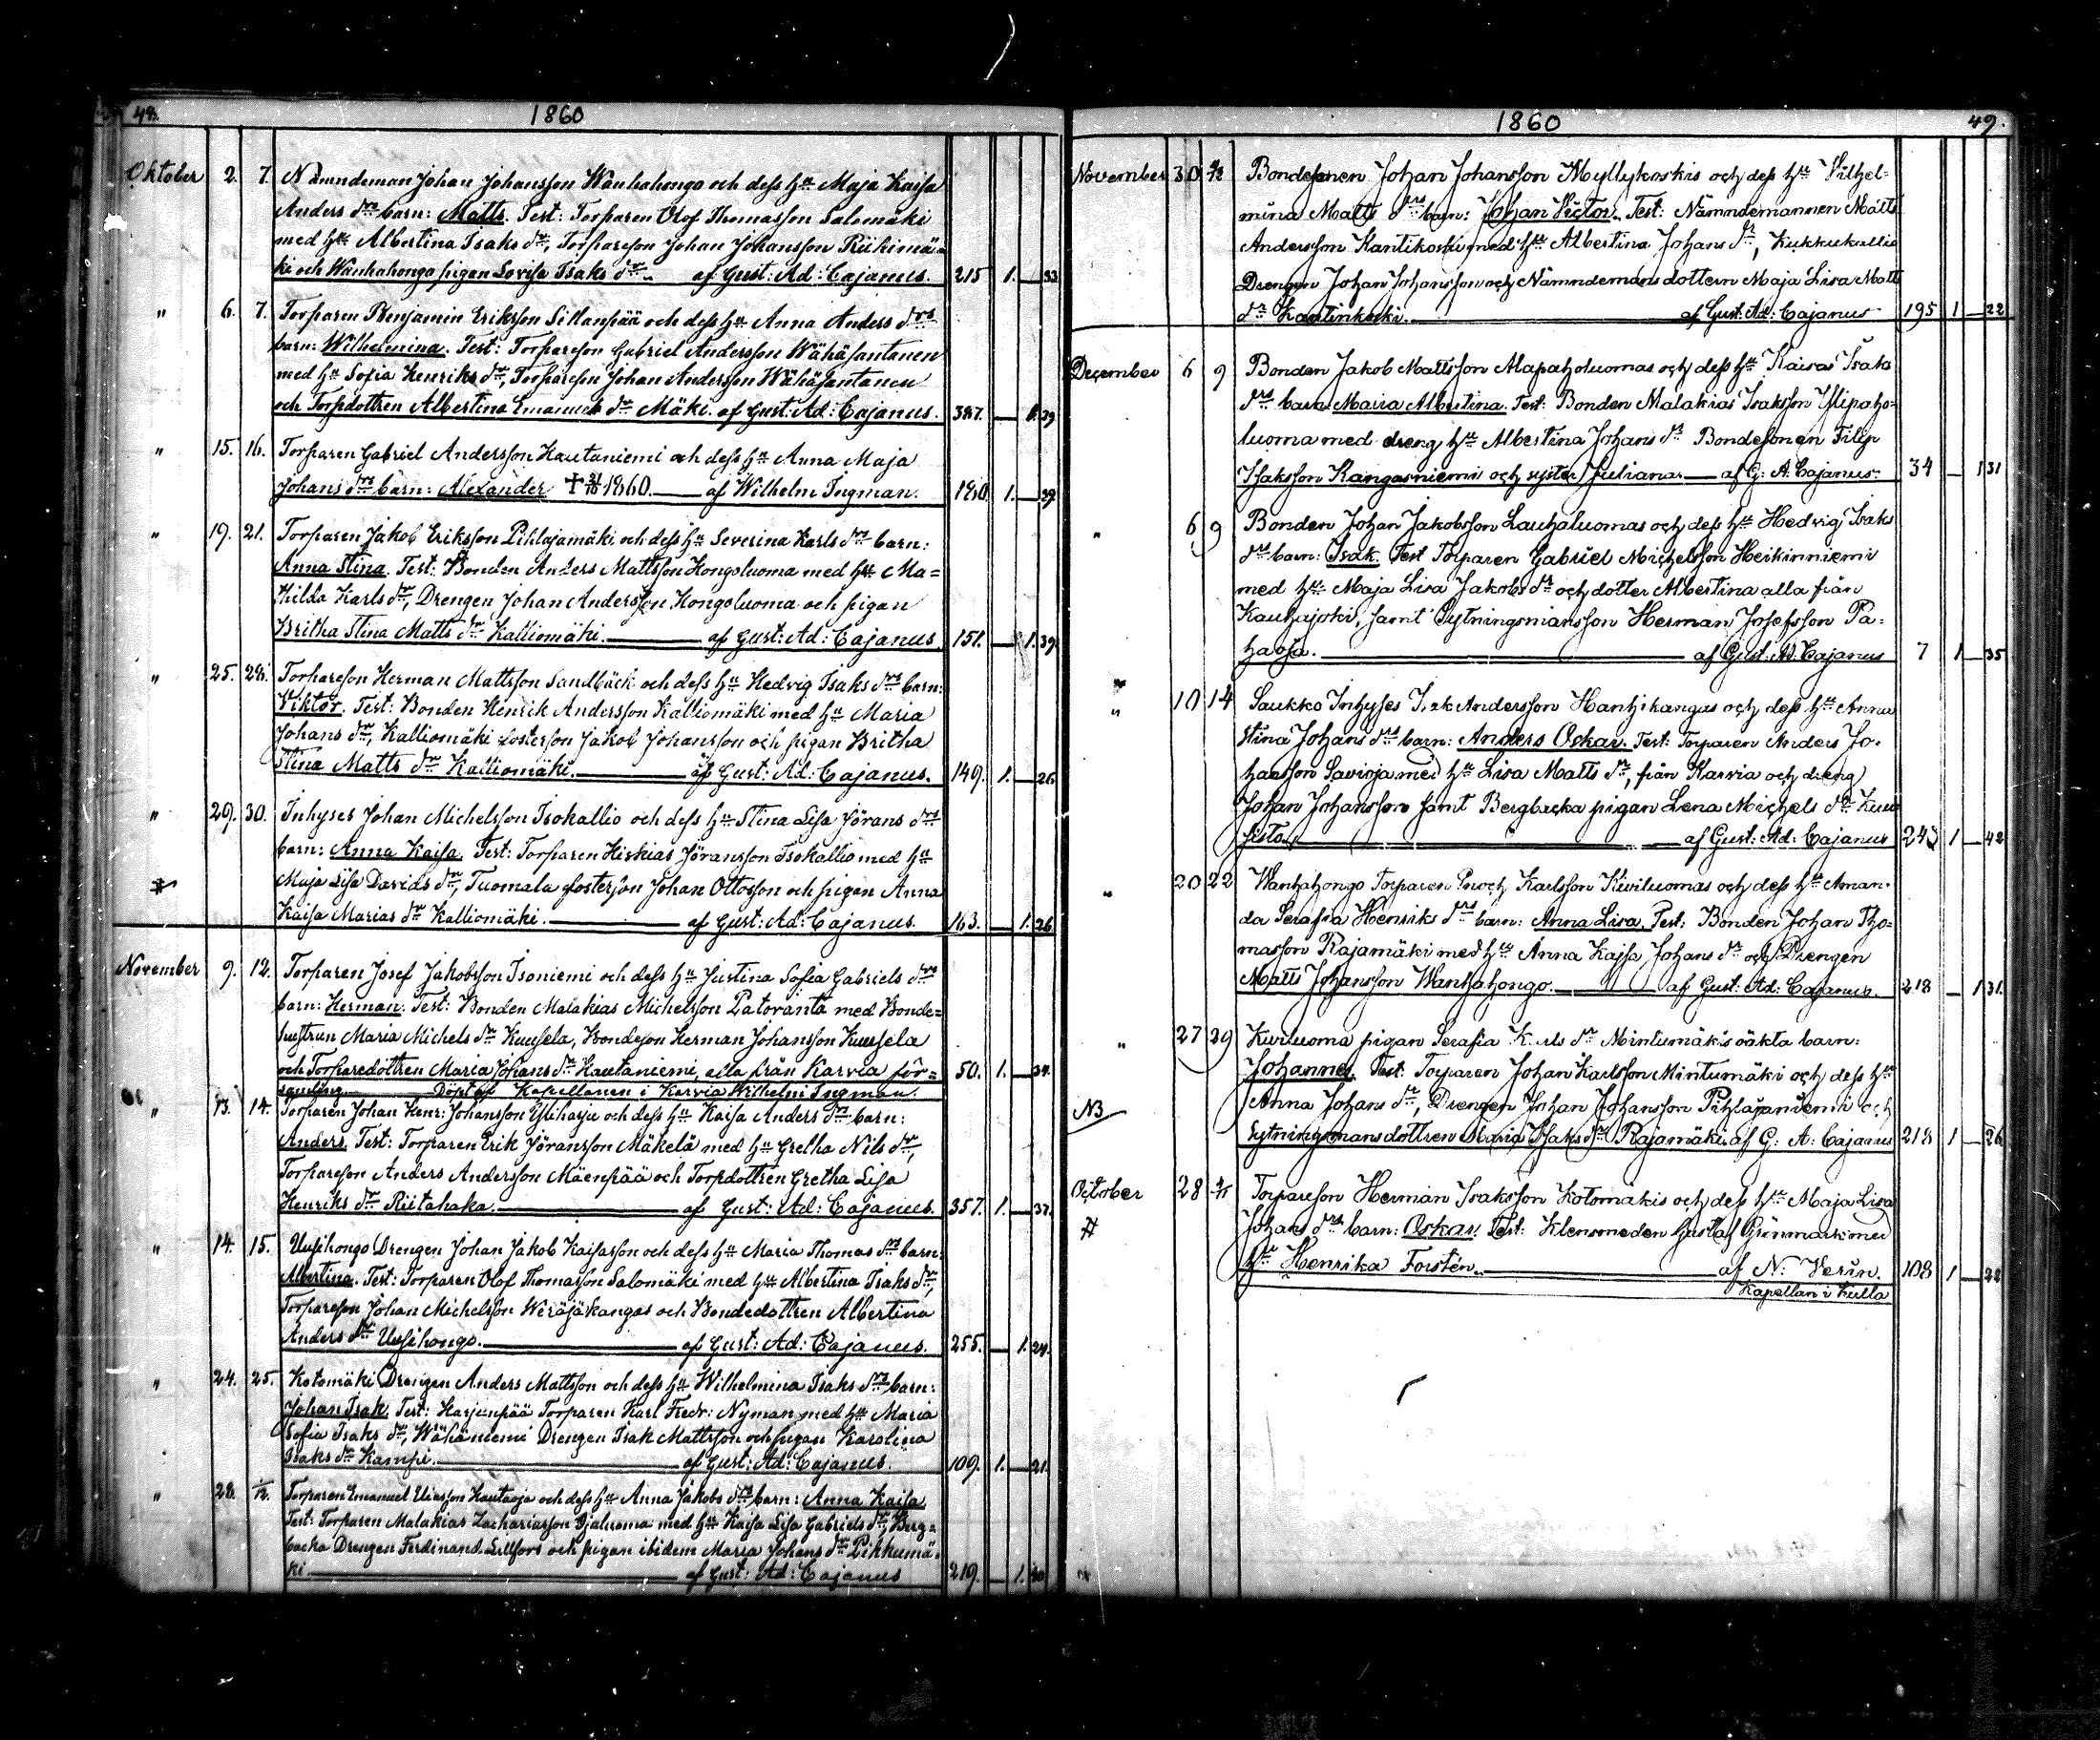 48.
1860
Oktober 2. 7. Nämndeman Johan Johansson Wanhahongo och dess hu Maja Kaisa
Anders drs barn: Matts. Test: Torparen Olof Thomasson Salomäki
med hu Albertina Isaks dr, Torpareson Johan Johansson Riikimä-
ki och Wanhahongo pigan Lovisa Isaks dr. af Gust: Ad: Cajanus. 215 1. 33
" 6. 7. Torparen Benjamin Eriksson Sillanpää och dess hu Anna Anders drs
barn: Wilhelmina. Test: Torpareson Gabriel Andersson Wähäsantanen
med hu Sofia Henriks dr, Torpareson Johan Andersson Wähäsantanen
och Torpdottren Albertina Emanuels dr Mäki. af Gust: Ad: Cajanus. 387. 1. 39
" 15. 16. Torparen Gabriel Andersson Hautaniemi och dess hu Anna Maja
Johans drs barn: Alexander † 1860. af Wilhelm Ingman. 180 1. 29
" 19. 21. Torparen Jakob Eriksson Pihlajamäki och dess hu Severina Karls drs barn:
Anna Stina. Test: Bonden Anders Mattsson Hongoluoma med hu Ma=
thilda Karls dr, Drengen Johan Andersson Hongoluoma och pigan
Britha Stina Matts dr Kalliomäki. af Gust: Ad: Cajanus 151. 1. 39.
" 25. 28. Torpareson Herman Mattsson Sandbäck och dess hu Hedvig Isaks drs barn:
Viktor. Test: Bonden Henrik Andersson Kalliomäki med hu Maria
Johans dr, Kalliomäki fosterson Jakob Johansson och pigan Britha
Stina Matts dr Kalliomäki. af Gust: Ad: Cajanus. 149. 1. 26.
" 29. 30. Inhyses Johan Michelsson Isokallio och dess hu Stina Lisa Jörans drs
barn: Anna Kaisa. Test: Torparen Hiskias Jöransson Isokallio med hu
Maja Lisa Davids dr, Tuomala fosterson Johan Ottosson och pigan Anna
Kaisa Marias dr Kalliomäki. af Gust: Ad: Cajanus. 163. 1. 26
November 9. 12. Torparen Josef Jakobsson Isoniemi och dess hu Justina Sofia Gabriels drs
barn: Herman. Test: Bonden Malakias Michelsson Patoranta med Bonde=
hustrun Maria Michels dr Kuusela, Bondeson Herman Johansson Kuusela
och Torparedottren Maria Johans dr Hautaniemi, alla från Karvia för=
samling. Döpt af Kapellanen i Karvia Wilhelm Ingman. 50. 1. 34.
" 13. 14. Torparen Johan Henr: Johansson Yliharju och dess hu Kaisa Anders drs barn:
Anders. Test: Torparen Erik Jöransson Mäkelä med hu Gretha Nils dr,
Torpareson Anders Andersson Mäenpää och Torpdottren Gretha Lisa
Henriks dr Riitahaka. af Gust: Ad: Cajanus. 357. 1. 37.
" 14. 15. Uusihongo Drengen Johan Jakob Kaisasson och dess hu Maria Thomas drs barn:
Albertina. Test: Torparen Olof Thomasson Salomäki med hu Albertina Isaks dr,
Torpareson Johan Michelsson Weräjäkangas och Bondedottren Albertina
Anders dr Uusihongo. af Gust: Ad: Cajanus. 255. 1. 24.
" 24. 25. Kotomäki Drengen Anders Mattsson och dess hu Wilhelmina Isaks drs barn:
Johan Isak. Test: Harjunpää Torparen Karl Fredr: Nyman med hu Maria
Sofia Isaks dr, Wähäniemi Drengen Isak Mattsson och pigan Karolina
Isaks dr Kampi. af Gust: Ad: Cajanus. 109. 1. 21.
" 28. 1/12. Torparen Emanuel Eliasson Hautaoja och dess hu Anna Jakobs drs barn: Anna Kaisa.
Test: Torparen Malakias Zachariasson Ojaluoma med hu Kaisa Lisa Gabriels dr, Berg=
backa Drengen Ferdinand Lillfors och pigan ibidem Maria Johans dr Pikkumä-
ki af Gust: Ad: Cajanus 219. 1. 30
1860
49.
November 30 Bondesonen Johan Johansson Myllykoskis och dess hu Vilhel=
mina Matts drs barn: Johan Victor. Test: Nämndemannen Matts
Andersson Kantikoski med hu Albertina Johans dr, Kukkukallio
Drengen Johan Johansson och Nämndemansdottern Maja Lisa Matts
dr Kantinkoski. af Gust: Ad: Cajanus 195 1 22
December 6 9 Bonden Jakob Mattsson Alapaholuomas och dess hu Kaisas Isaks
drs barn Maria Albertina. Test: Bonden Malakias Isaksson Ylipaho-
luoma med dreng hu Albertina Johans dr Bondesonen Filip
Isaksson Kangasniemi och syster Juliana af G: A. Cajanus. 34 1 31
" 6 9 Bonden Johan Jakobsson Lauhaluomas och dess hu Hedvig Isaks
drs barn: Isak. Test Torparen Gabriel Michelsson Heikinniemi
med hu Maja Lisa Jakobs dr och dotter Albertina alla från
Kauhajoki, samt Sytningsmansson Herman Josefsson Pa-
haoja. af Gust: Ad. Cajanus 7 1 35
" 10 14 Saukko Inhyses Isak Andersson Hanhikangas och dess hu Anna
Stina Johans drs barn: Anders Oskar. Test: Torparen Anders Jo-
hansson Savioja med hu Lisa Matts dr, från Karvia och dreng
Johan Johansson samt Bergbacka pigan Lena Michels dr Kuu
sisto. af Gust: Ad: Cajanus 243 1 42
" 20 22 Wanhahongo Torparen Enoch Karlsson Kiviluomas och dess hu Aman-
da Serafia Henriks drs barn: Anna Lisa. Test: Bonden Johan Tho-
masson Rajamäki med hu Anna Kajsa Johans dr och Drengen
Matts Johansson Wanhahongo. af Gust: Ad: Cajanus. 218 1 31.
" 27 29 Kiviluoma pigan Serafia Karls dr Mintumäkis oäkta barn:
Johannes. Test: Torparen Johan Karlsson Mintumäki och dess hu
NB Anna Johans dr, Drengen Johan Johansson Pihlajaniemi och
Sytningsmansdottren Maria Isaks dr Rajamäki af G: A: Cajanus 218 1 26
October 28 Torpareson Herman Isaksson Kotomäkis och dess hu Maja Lisa
# Johans drs barn: Oskar. Test: Klensmeden Gustaf Grönmark med
hu Henrika Forstén. af N: Verin. 108 1 22
Kapellan i Kulla